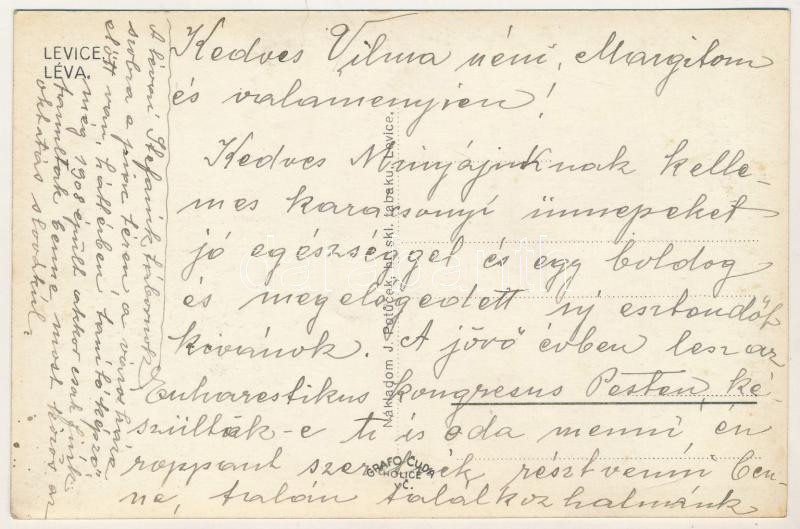 LEVICE.
LÉVA.
Kedves Vilma néni, Margitom
és valamenyien!
Kedves Minyájuknak kelle-
mes karácsonyi ünnepeket
jó egészséggel és egy boldog
és megelégedett új esztendőt
kivánok. A jövő évben lesz az
Euharestikus kongresus Pesten, ké-
szültök-e ti is oda menni, én
roppant szeretnék résztvenni ben-
ne, talán találkozhatnánk
A lévai Stefanik tábornok
szobra a piac téren, a városháza
előtt van, háttérben tanitóképző
még 1908 épült akkor csak fiuk
tanultak benne most közös az
oktatás slovákul.
Nákladom J. Potůček, hl. skl. tabaku, Levice.
GRAFO ČUDA
HOLICE
V Č.
darabanth